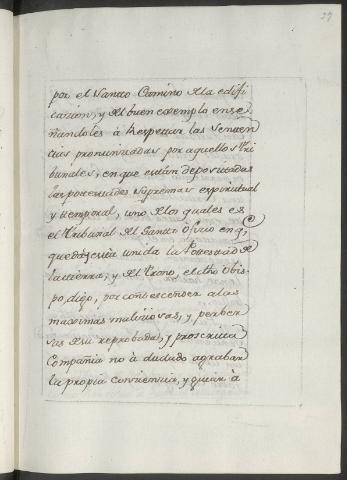 27
por el Santto Camino de la edifi
cacion, y del buen exemplo ense
ñandoles à Respettar las Senten
cias pronunciadas por aquellos Tri
bunales, en que están depositadas
las pottestades supremas espiritual
y temporal, uno de los quales es
el Tribunal del Santto Oficio en q.e
quedó unida la Pottestad de
la tierra, y del Trono, el dho Obis
po, digo, por condescender a las
maximas maliciosas, y perber
sas de su reprobada, y proscrita
Compañia no à dudado agrabar
la propia conciencia, y guiar à